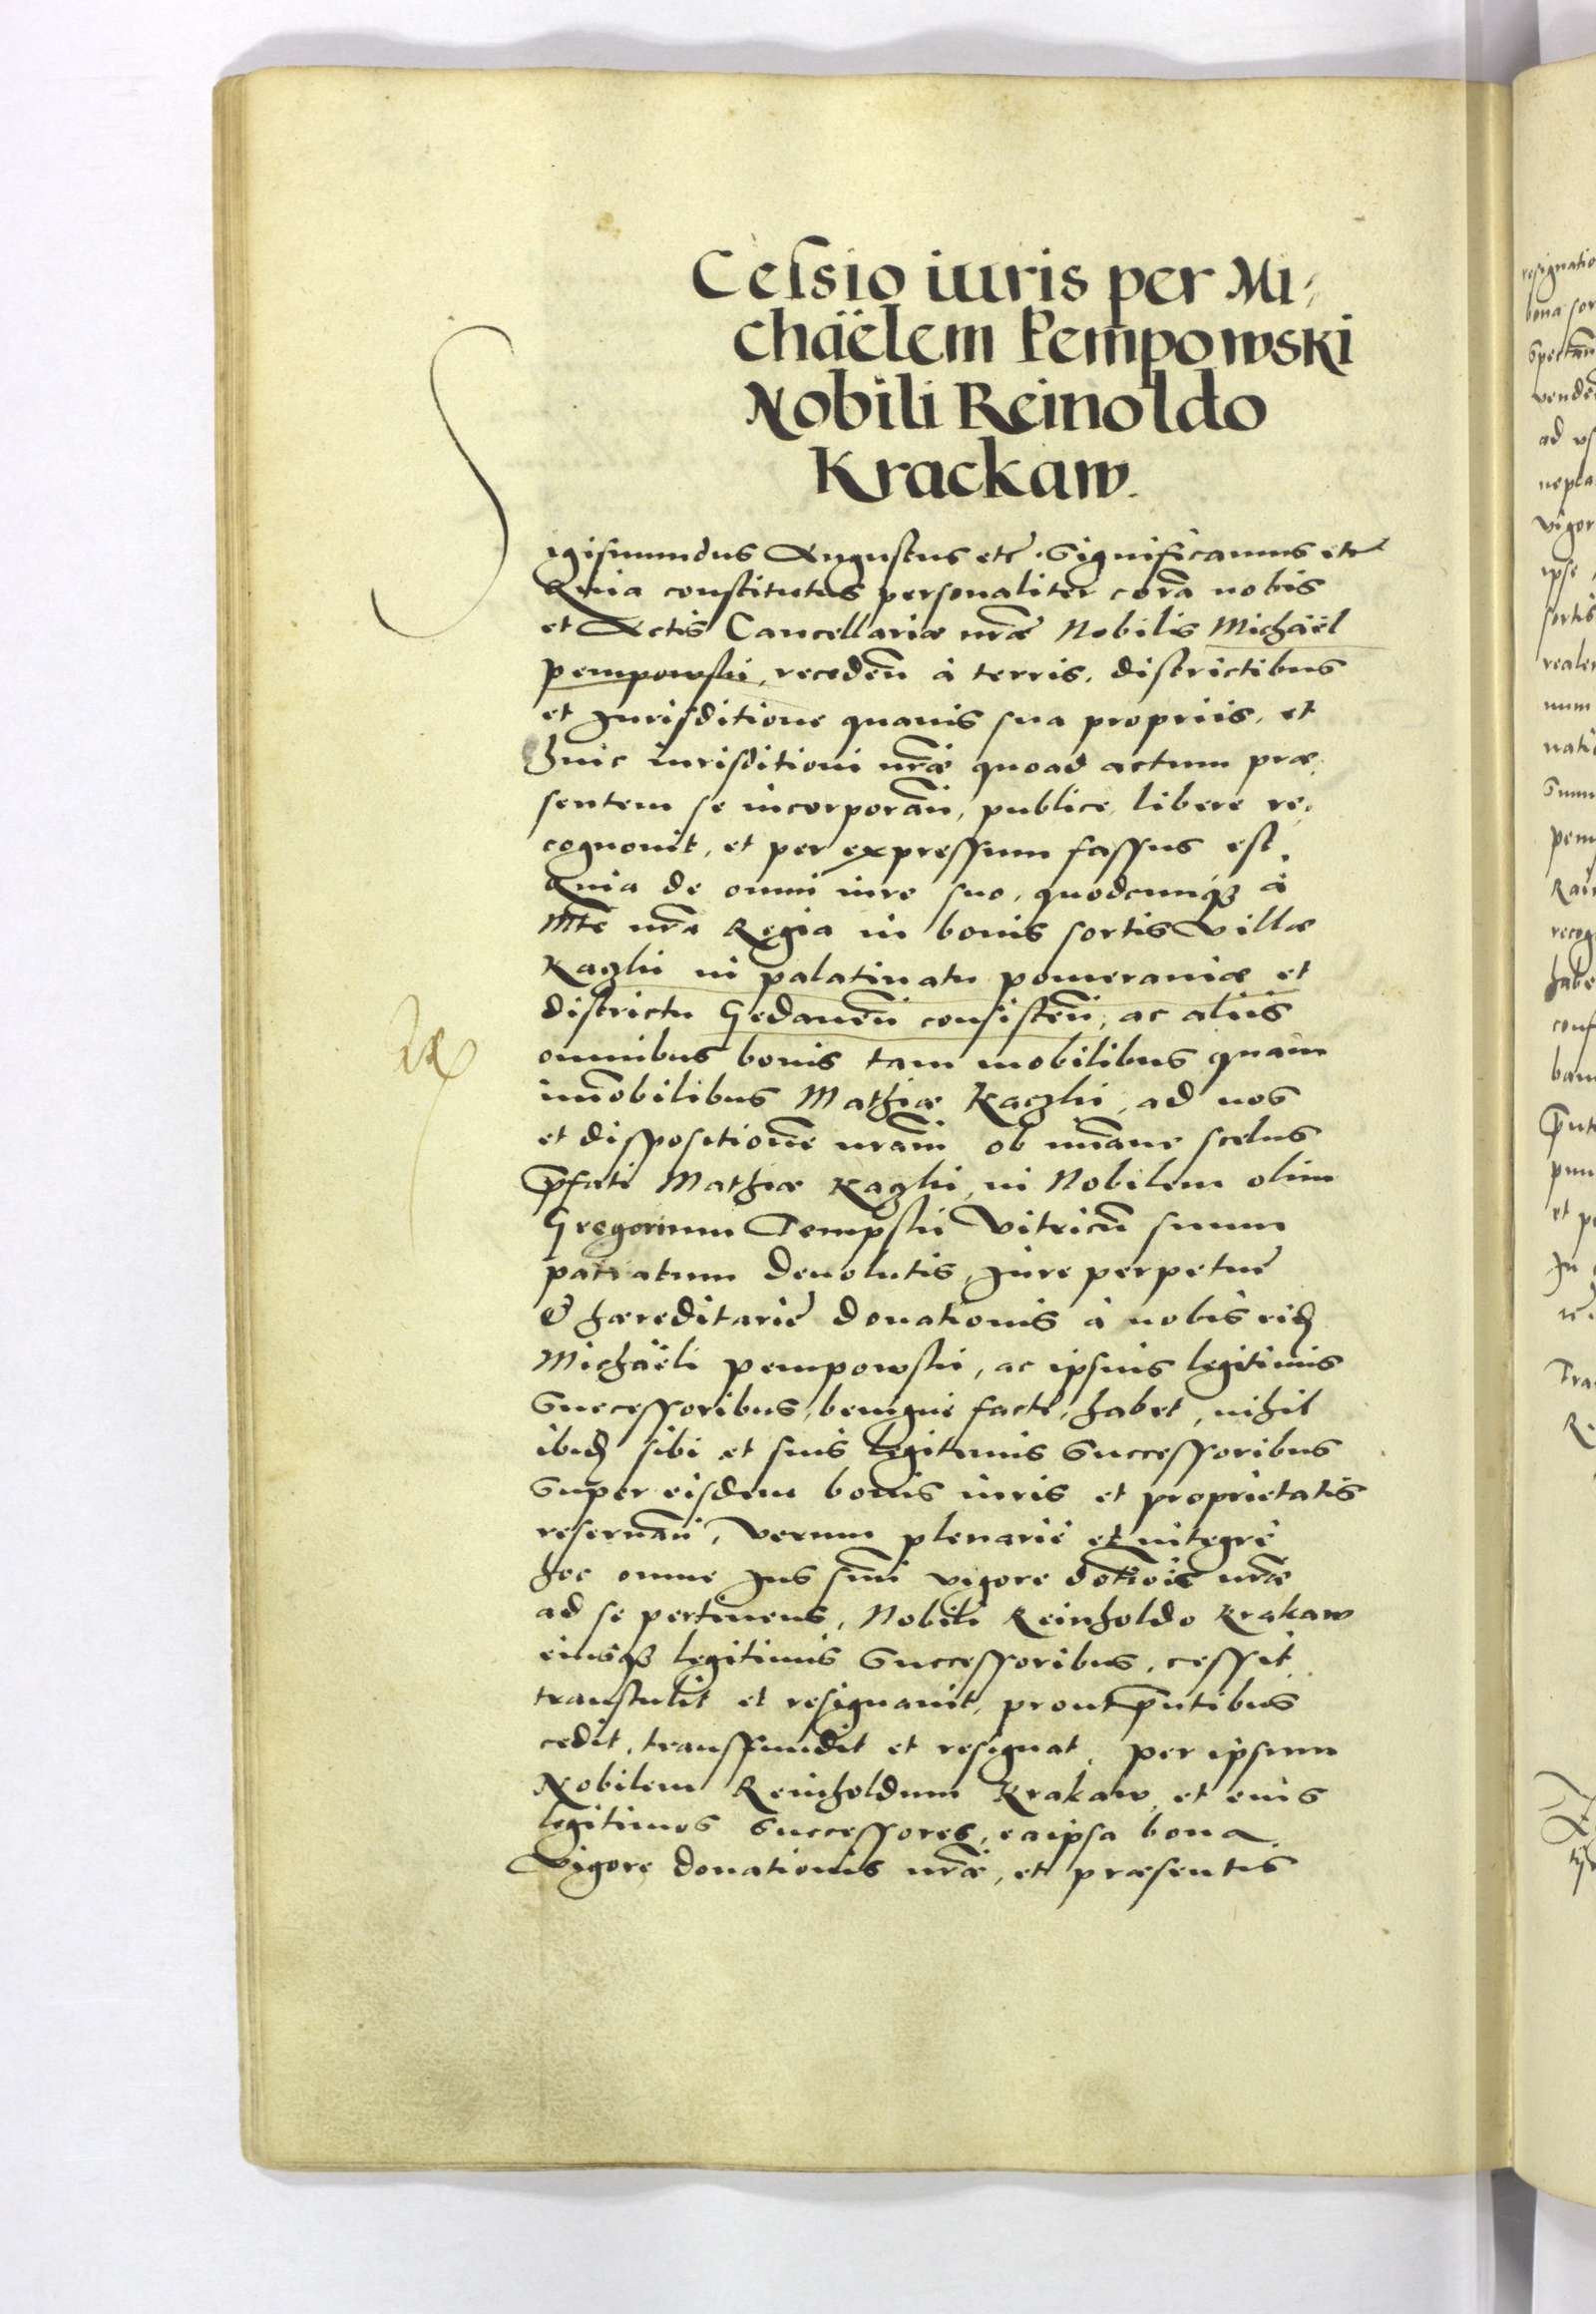 Cessio iuris per Mi-
chäelem Pempowski
Nobili Reinoldo
Krackaw.
Sigismundus Augustus etc. Significamus etc
Quia constitutus personaliter corā nobis
et Actis Cancellariæ nr̄æ Nobilis Michäel
Pempowski, recedeñ à terris, districtibus
et Jurisditione quauis sua propriis, et
huic iurisditioni nr̄æ quoad actum præ-
sentem se incorporañ, publice, libere re-
cognouit, et per expressum fassus est,
Quia de omni iure suo, quodcunqꝫ à
Mte nr̄a Regia in bonis sortis Villæ
Kaczki in palatinatu pomeraniæ et
districtu Gedaneñ consisteñ, ac aliis
omnibus bonis tam mobilibus quàm
im̄obilibus Mathiæ Kaczki, ad nos
et dispositionē nr̄am ob im̄ane scelus
p̄fati Mathiæ Kaczki, in Nobilem olim
Gregorium Tempski Vitricū suum
patratum deuolutis, Jure perpetuę
& hæreditarię donationis à nobis eid
Michäeli Pempowski, ac ipsius legitimis
Successoribus, benigne factę, habet, nihil
ibid sibi et suis legitimis Successoribus
Super eisdem bonis iuris et proprietatis
reseruañ, Verum plenariè et integrè
hoc omne Jus suū vigore dōtiōis nr̄æ
ad se pertinens, Nobili Reinholdo Krakaw
eiusqꝫ legitimis Successoribus, cessit
transtulit et resignauit, prout p̄ntibus
cedit, transfundit et resignat, per ipsum
Nobilem Reinholdum Krakaw, et eius
legitimos Successores, ea ipsa bona
Vigore donationis nr̄æ, et præsentis